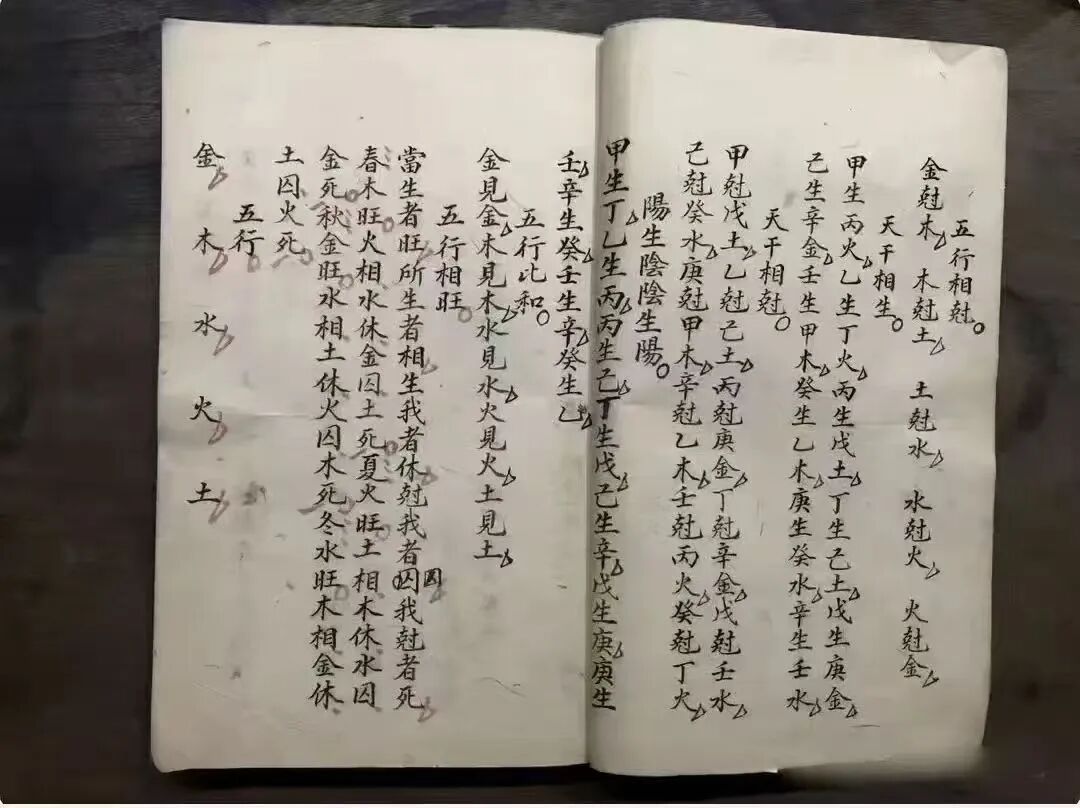 五行相尅。
金尅木、木尅土、土尅水、水尅火、火尅金、
天干相生。
甲生丙火、乙生丁火、丙生戊土、丁生己土、戊生庚金、
己生辛金、壬生甲木、癸生乙木、庚生癸水、辛生壬水、
天干相尅。
甲尅戊土、乙尅己土、丙尅庚金、丁尅辛金、戊尅壬水、
己尅癸水、庚尅甲木、辛尅乙木、壬尅丙火、癸尅丁火、
陽生陰陰生陽。
甲生丁、乙生丙、丙生己、丁生戊、己生辛、戊生庚、庚生
壬、辛生癸、壬生辛癸生乙、
五行比和。
金見金、木見木、水見水、火見火、土見土、
五行相旺。
當生者旺、所生者相、生我者休、尅我者囚、囚我尅者死、
春木旺、火相水休金囚土死、夏火旺土相木休水囚
金死、秋金旺、水相土休火囚木死、冬水旺木相金休
土囚火死、
五行。
金、木、水、火、土、